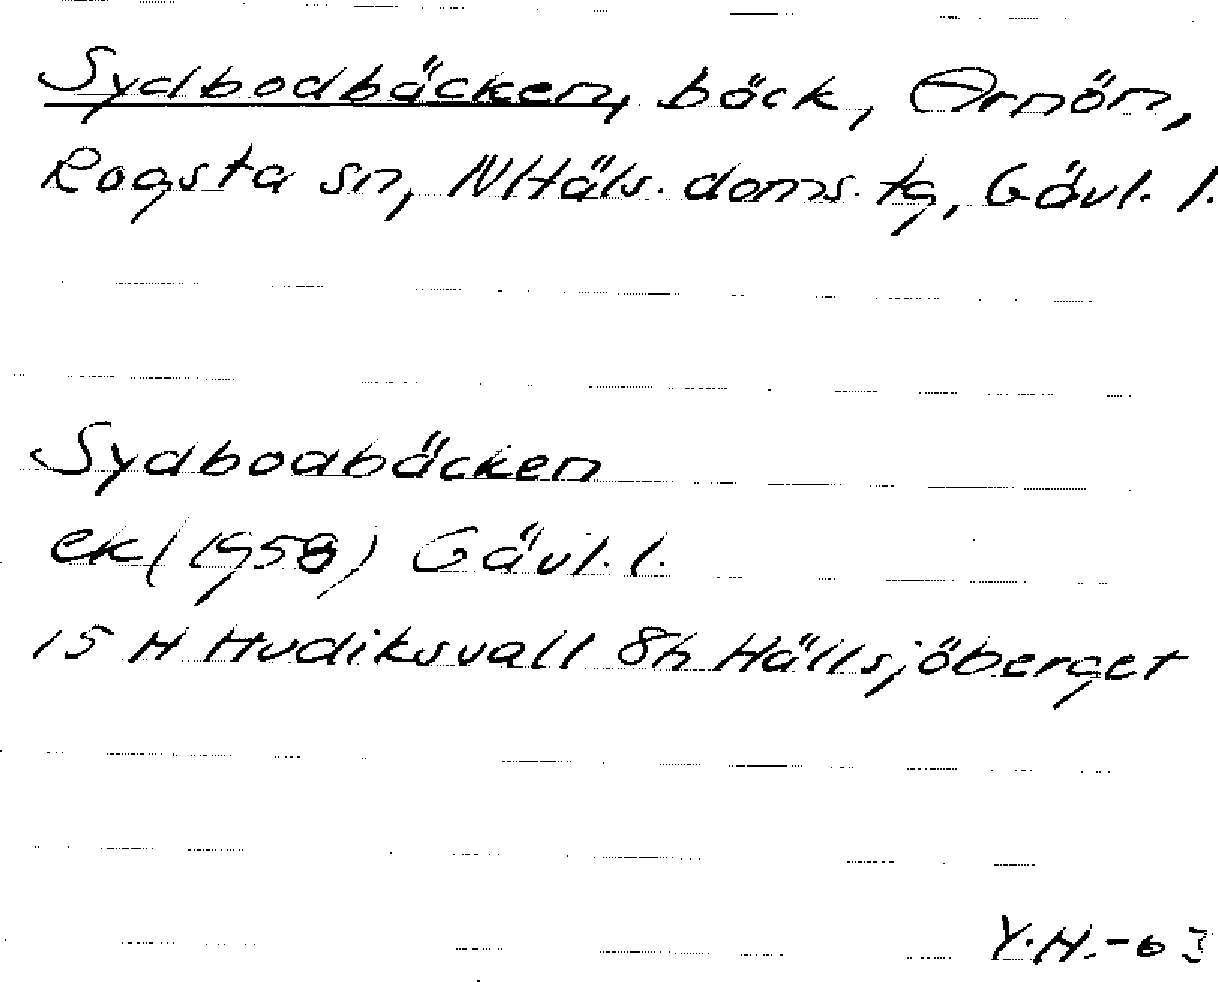 Sydbodbäcken, bäck, Ornön,
Rogsta sn, NHäls. doms. tg, Gävl. l.
Sydbodbäcken
ek (1958) Gävl. l.
15 H Hudiksvall 8h Hällsjöberget
Y.H.-63